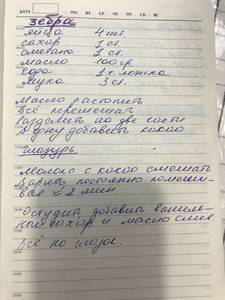 ДАТА ПН ВТ СР ЧТ ПТ СБ ВС
зебра
яйца 4 шт.
сахар 1 ст.
сметана 1 ст.
масло 100 гр.
сода 1 ч. ложка
мука 3 ст.
Масло растопить
Всё перемешать
Разделить на две части
В одну добавить какао
Глазурь
Молоко с какао смешать
Варить постоянно помеши-
вая 2 мин
Остудить добавить ваниль-
ный сахар и масло слив.
Всё на глазок.